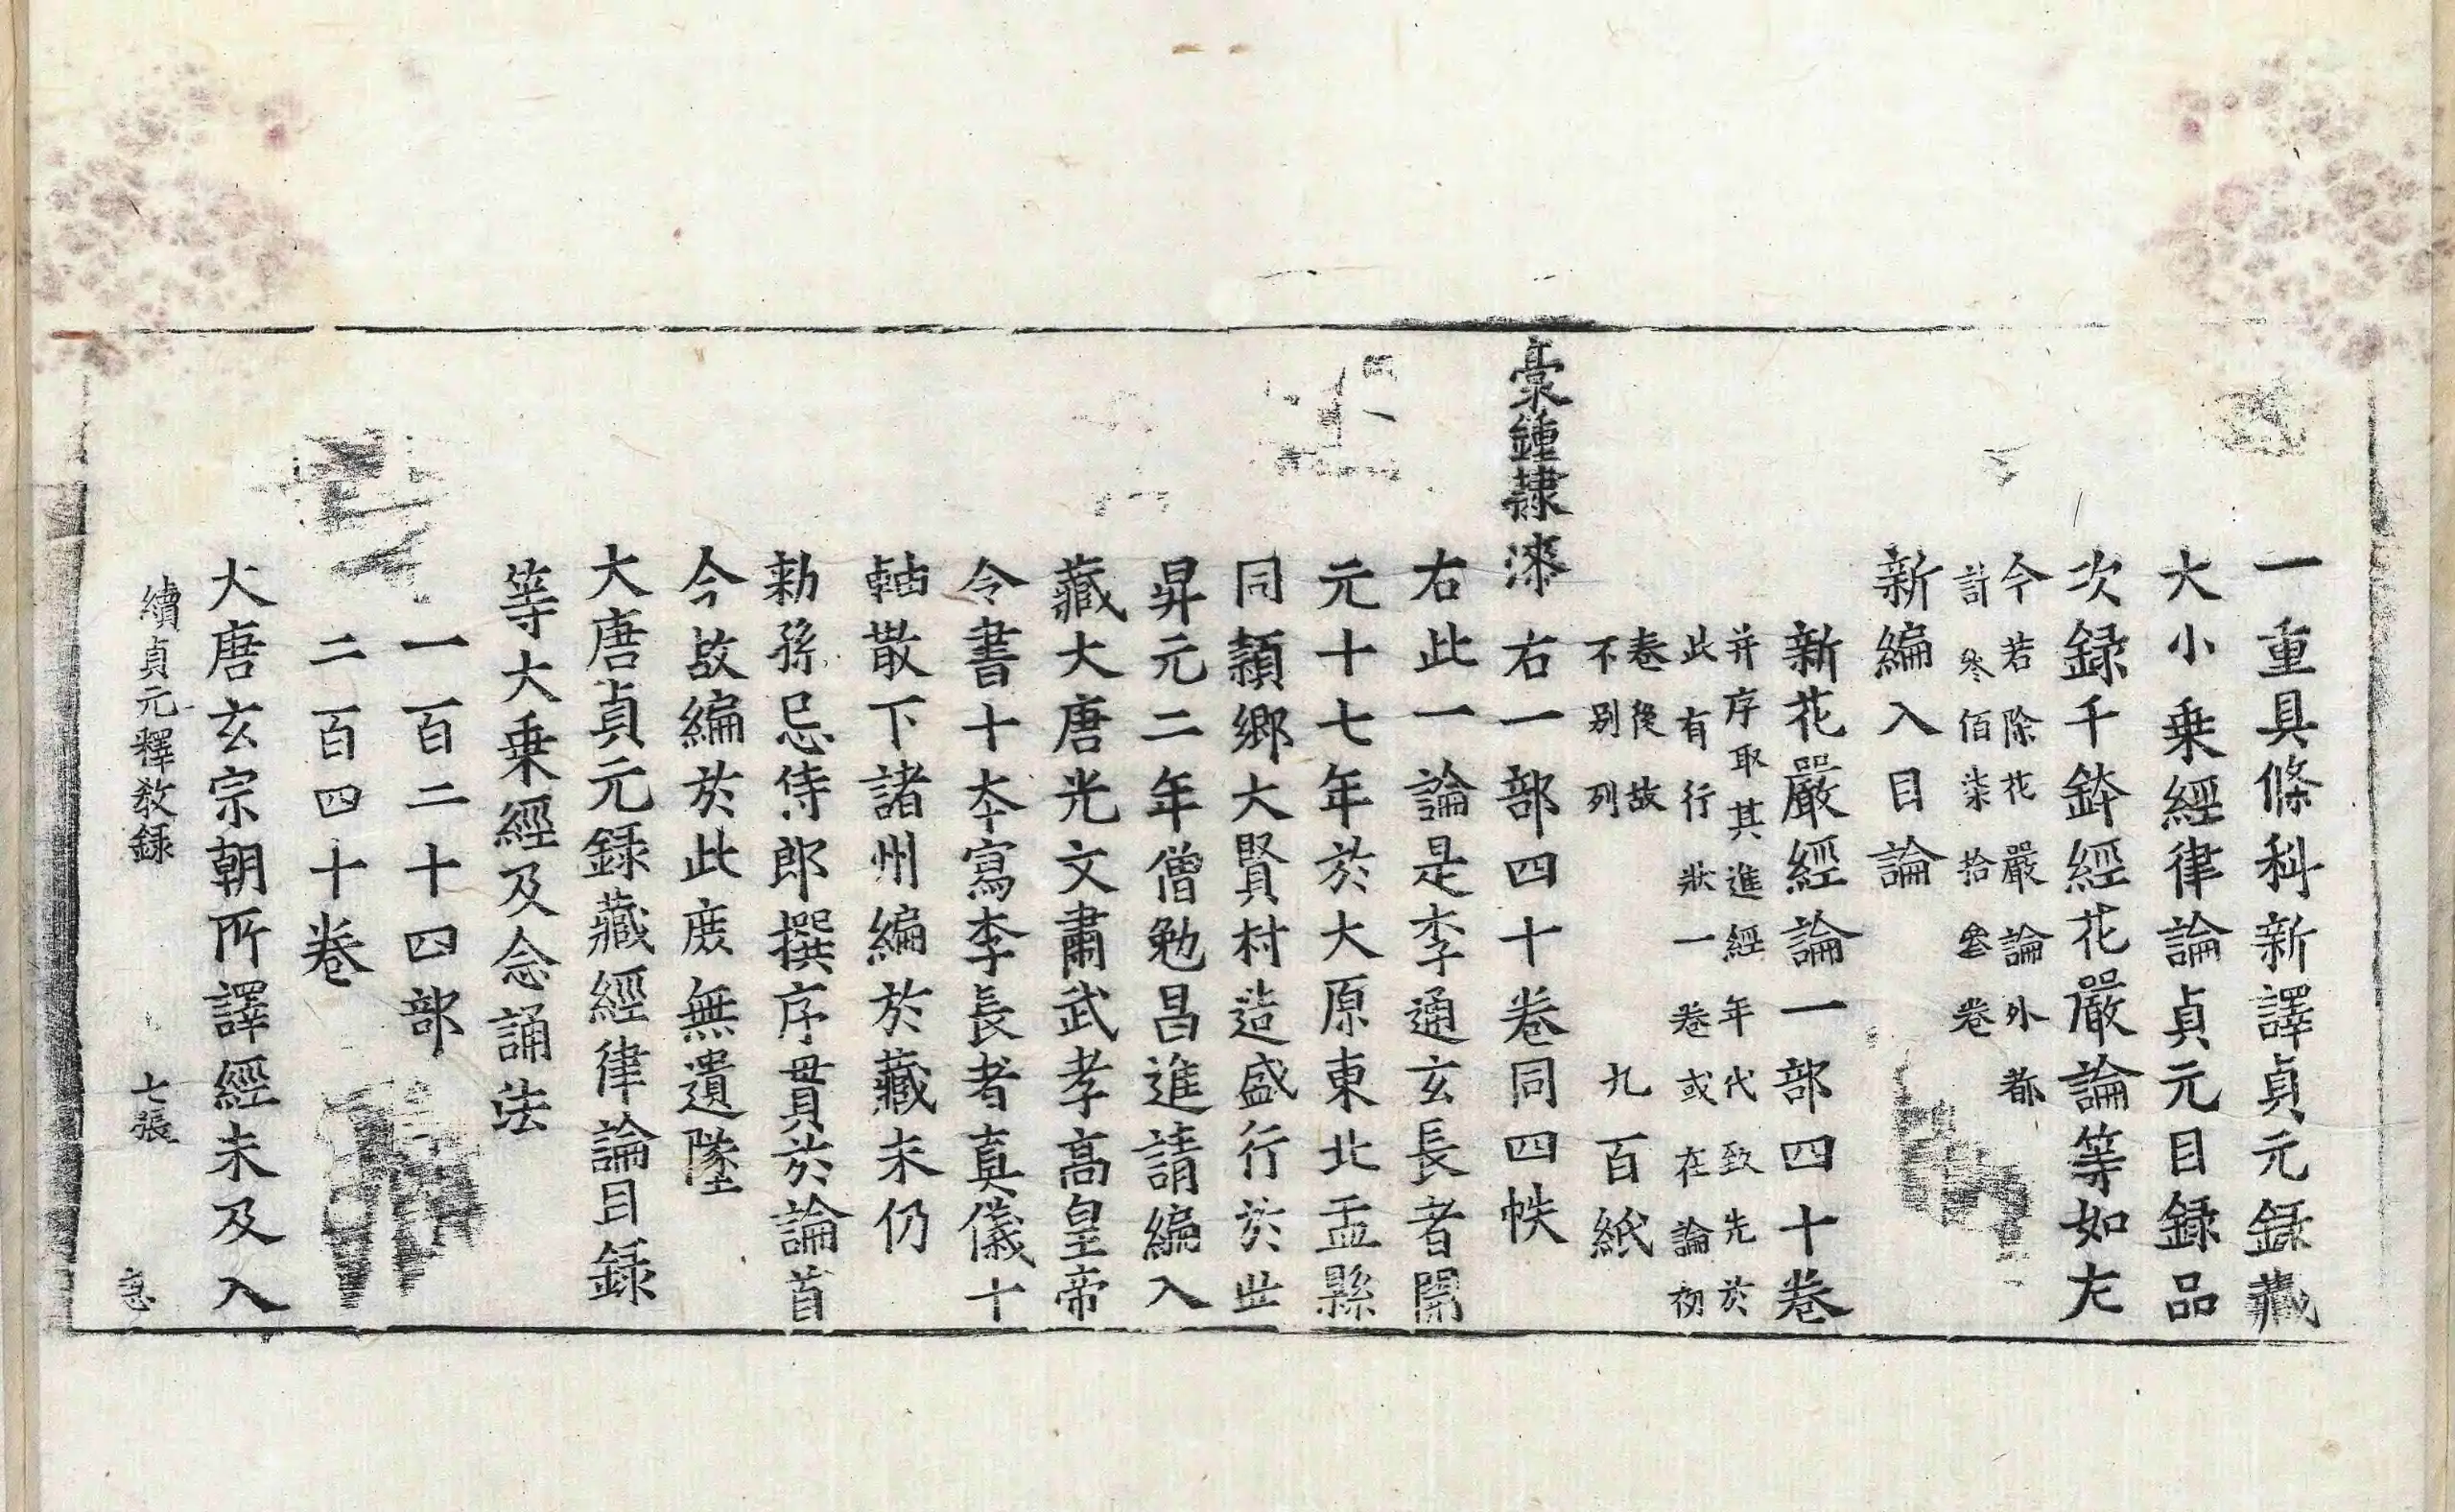 一重具條科新譯貞元録藏
大小乗經律論貞元目録品
次録千鉢經花嚴論等如左
今若除花嚴論外都
計叅佰柒拾叄卷
新編入目論
新花嚴經論一部四十卷
并序取其進經年代致先於
此有行狀一卷或在論初
卷後故
不别列
九百紙
稾鍾隸漆
右一部四十卷同四帙
右此一論是李通玄長者開
元十七年於大原東北盂縣
同潁鄉大賢村造盛行於世
昇元二年僧勉昌進請編入
藏大唐光文肅武孝高皇帝
令書十本寫李長者真儀十
軸散下諸州編於藏末仍
勑孫忌侍郎撰序貫於論首
今故編於此庻無遺墜
大唐貞元録藏經律論目録
等大乗經及念誦法
一百二十四部
二百四十卷
大唐玄宗朝所譯經未及入
續貞元釋教録 七張 㥯